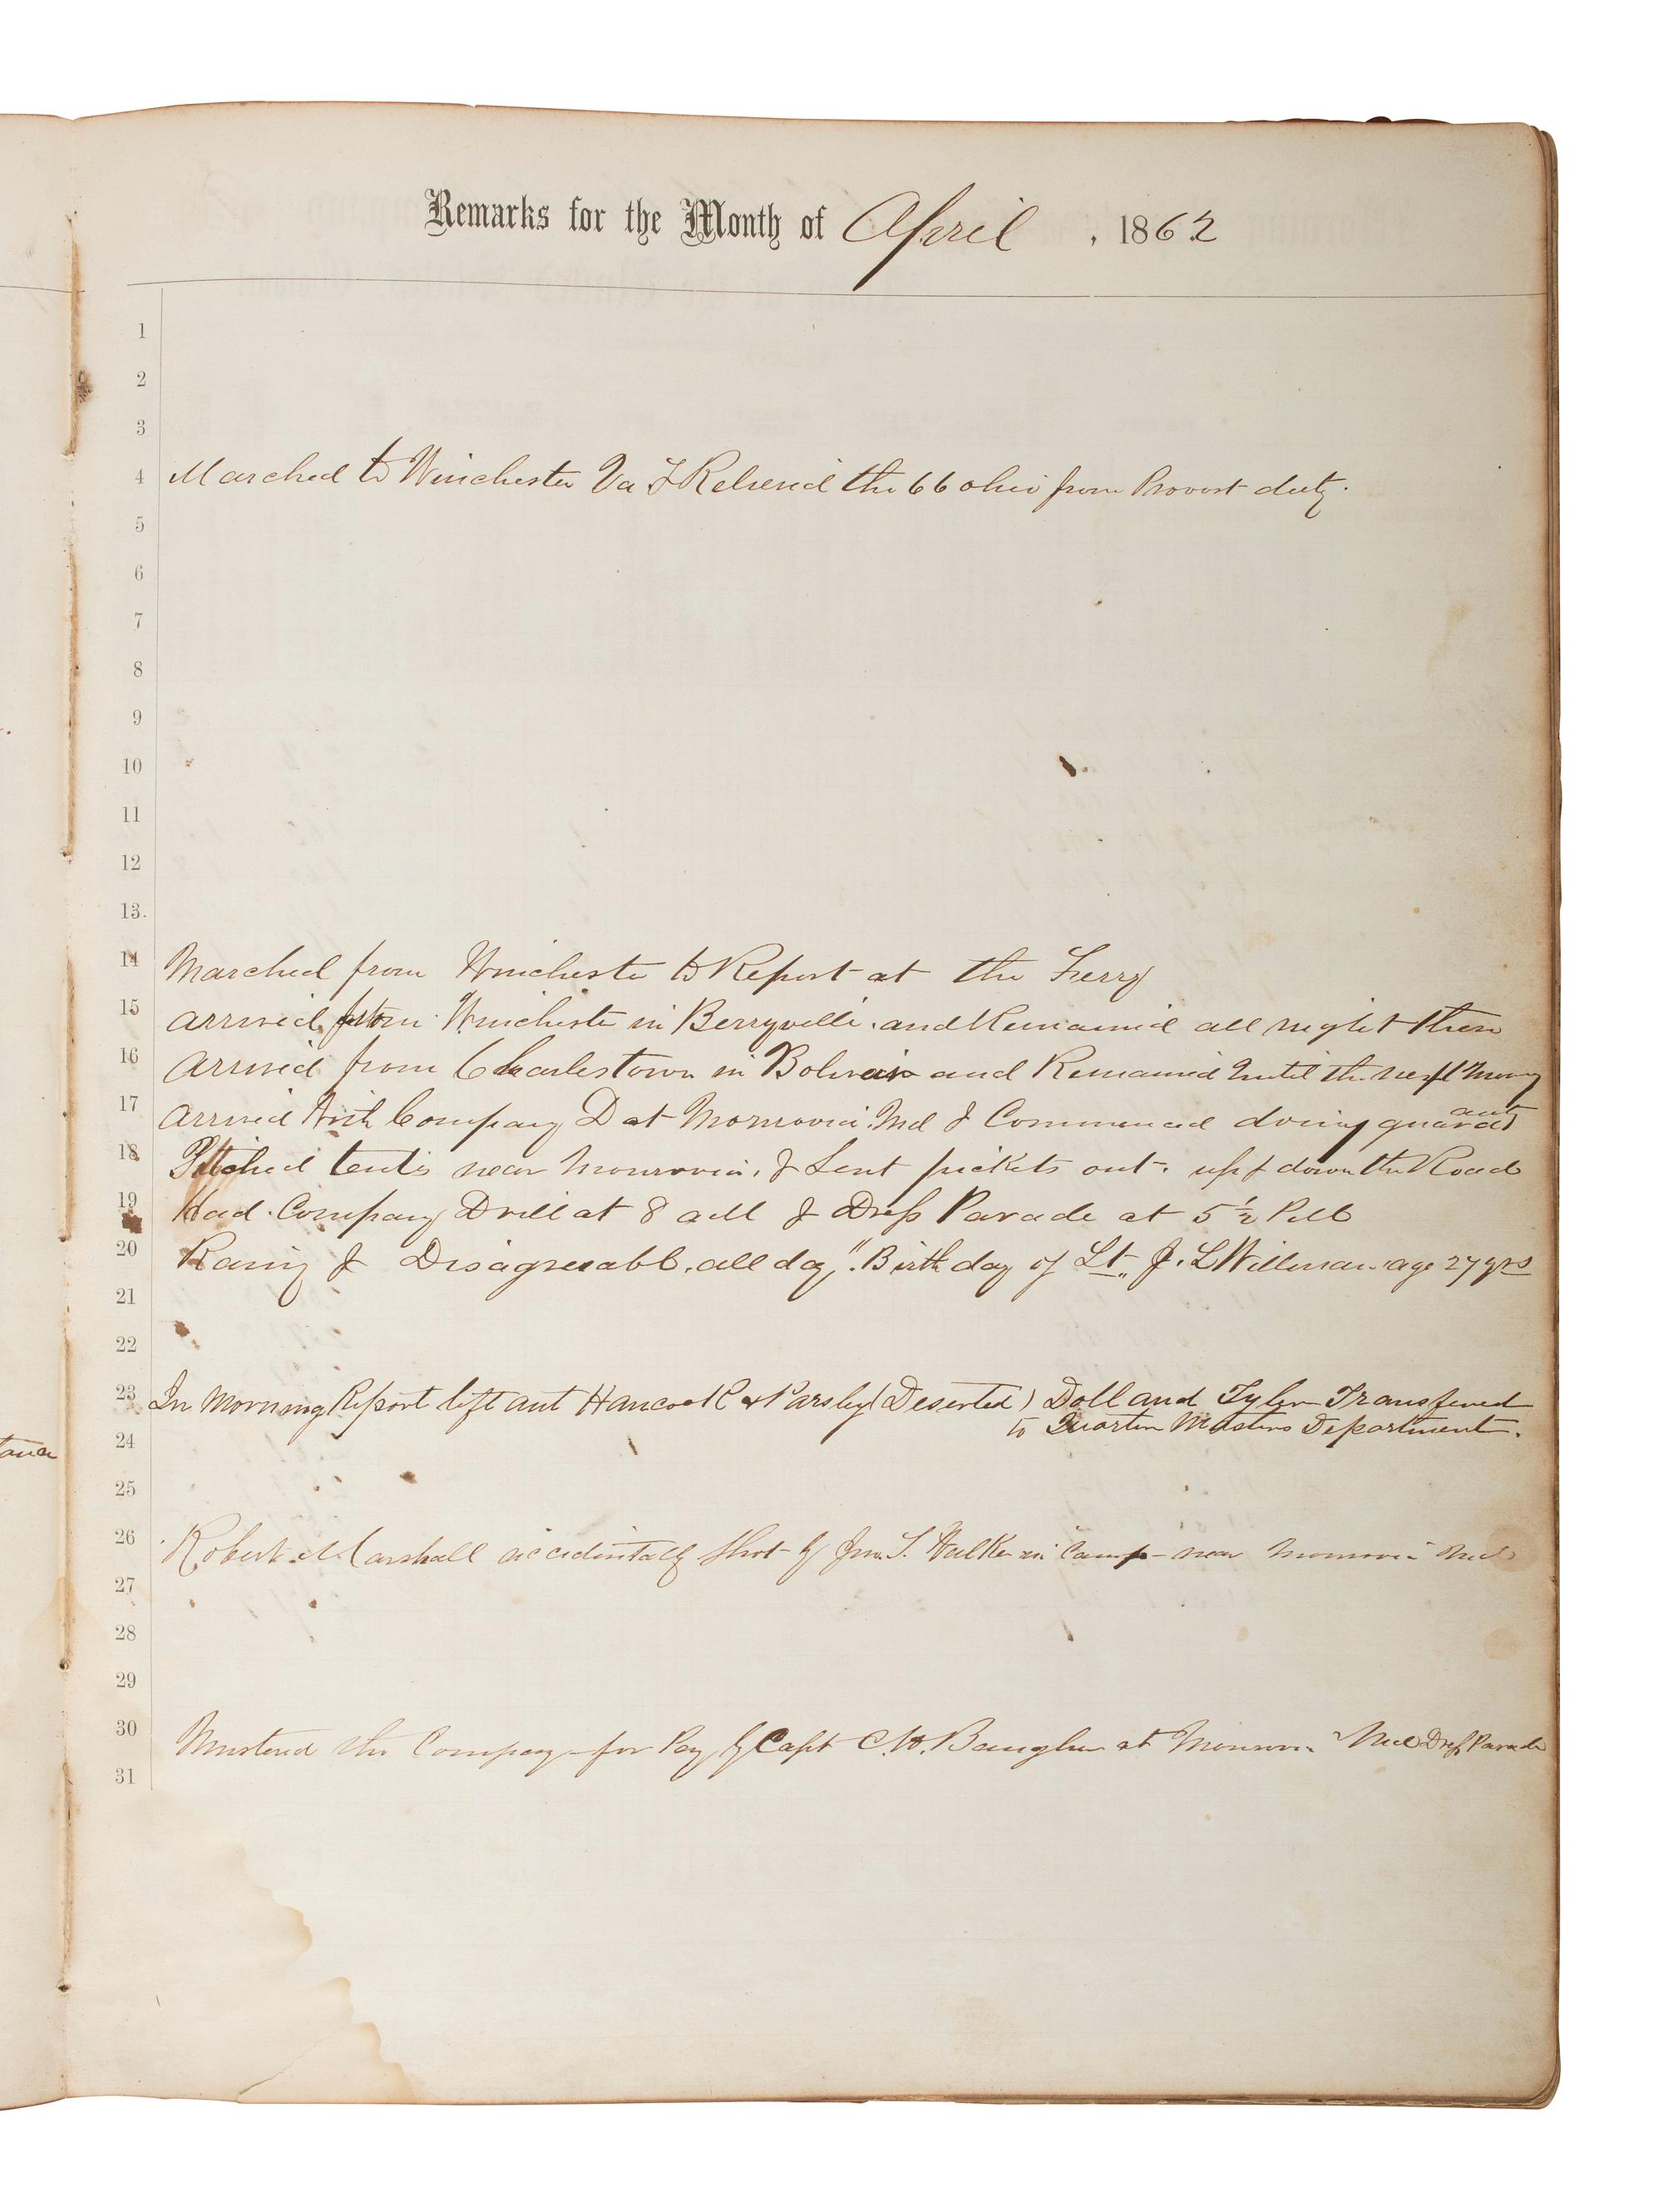 Remarks for the Month of April, 1862
1
2
3
4 Marched to Winchester Va & Releived the 66 ohio from Provost duty.
5
6
7
8
9
10
11
12
13.
14 Marched from Winchester to Report at the Ferry
15 arrived from Winchester in Berryville. and Remained all night there
16 Arrived from Charlestown in Bolivar and Remained Until the next
17 Arrived with Company D at Monrovia. Md & Commenced doing guard
18 Pitched tents near Monrovia. & Sent pickets out. up & down the Road
19 Had Company Drill at 8 AM & Dress Parade at 5 ½ PM
20 Rainy & Disagreeabl. all day". Birth day of Lt. J. L Willman age 27 yrs
21
22
23 In Morning Report left out Hancock & Parsley (Deserted) Doll and Tyler Transfered
to Quarter Masters Department.
24
tana
25
26 Robert Marshall accidentally Shot by Jno. T. Walker in Camp near Monrovia Md
27
28
29
30 Mustered the Company for Pay by Capt C. W. Baugher at Monrovia Md Dress Parade
31